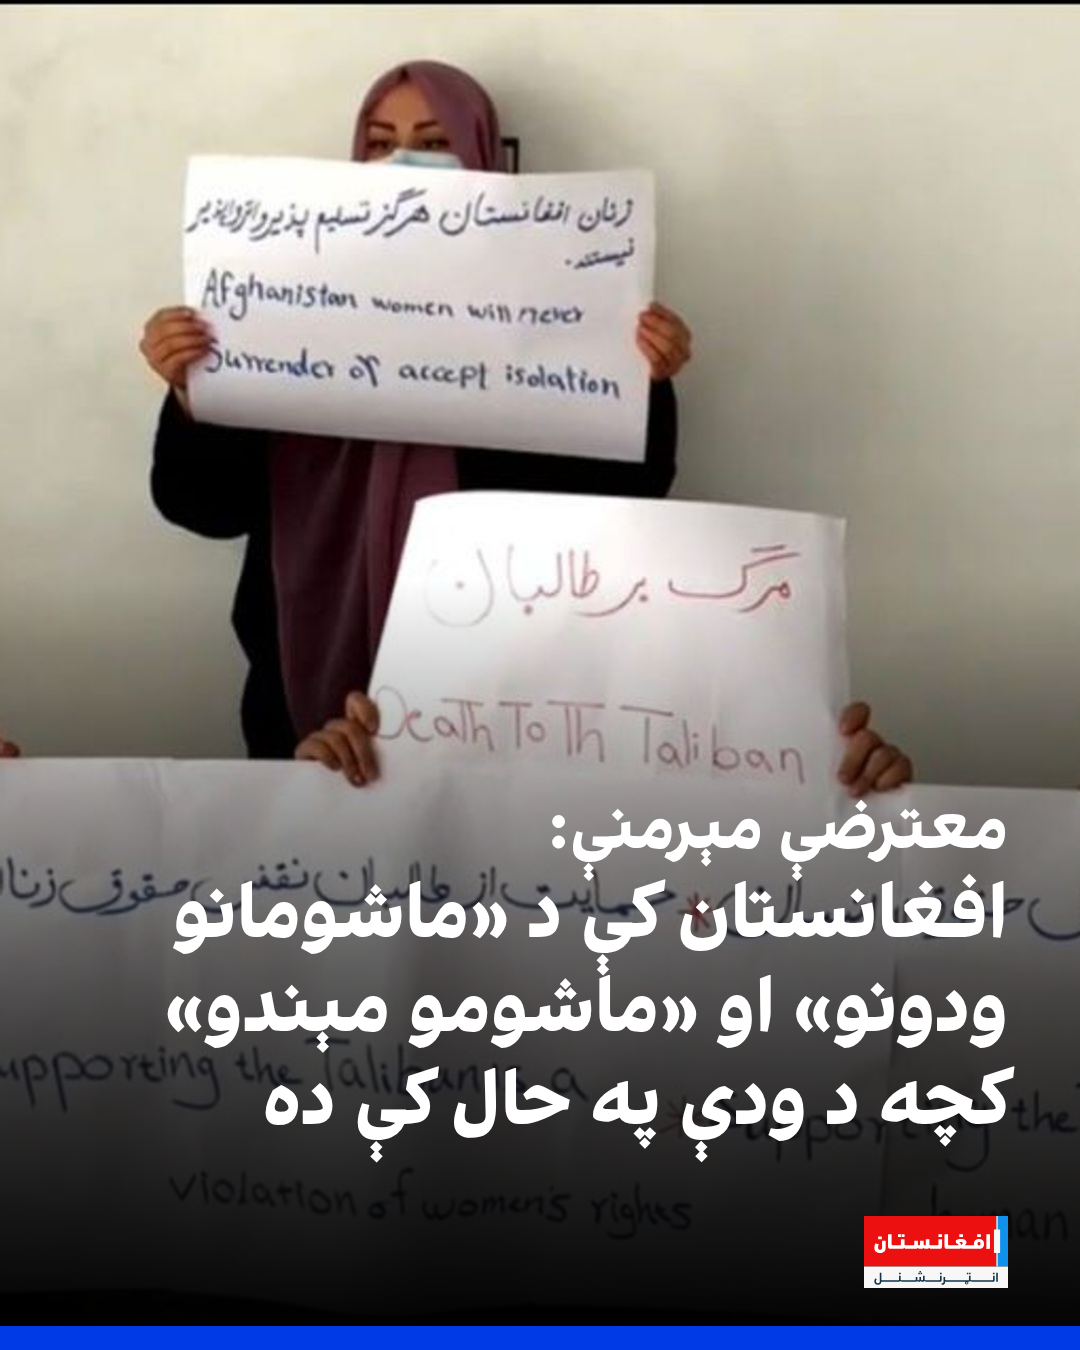 زنان افغانستان هرگز تسلیم پذیر و انزوا پذیر
نیستند.
Afghanistan women will never
Surrender or accept isolation
مرگ بر طالبان
Death To Th Taliban
معترضې مېرمنې:
افغانستان کې د «ماشومانو
ودونو» او «ماشومو مېندو»
کچه د ودې په حال کې ده
حمایت از طالبان نقض حقوق زنا
upporting the Taliban is a
violation of women's rights
Supporting the
human
افغانستان
انټرنشنل